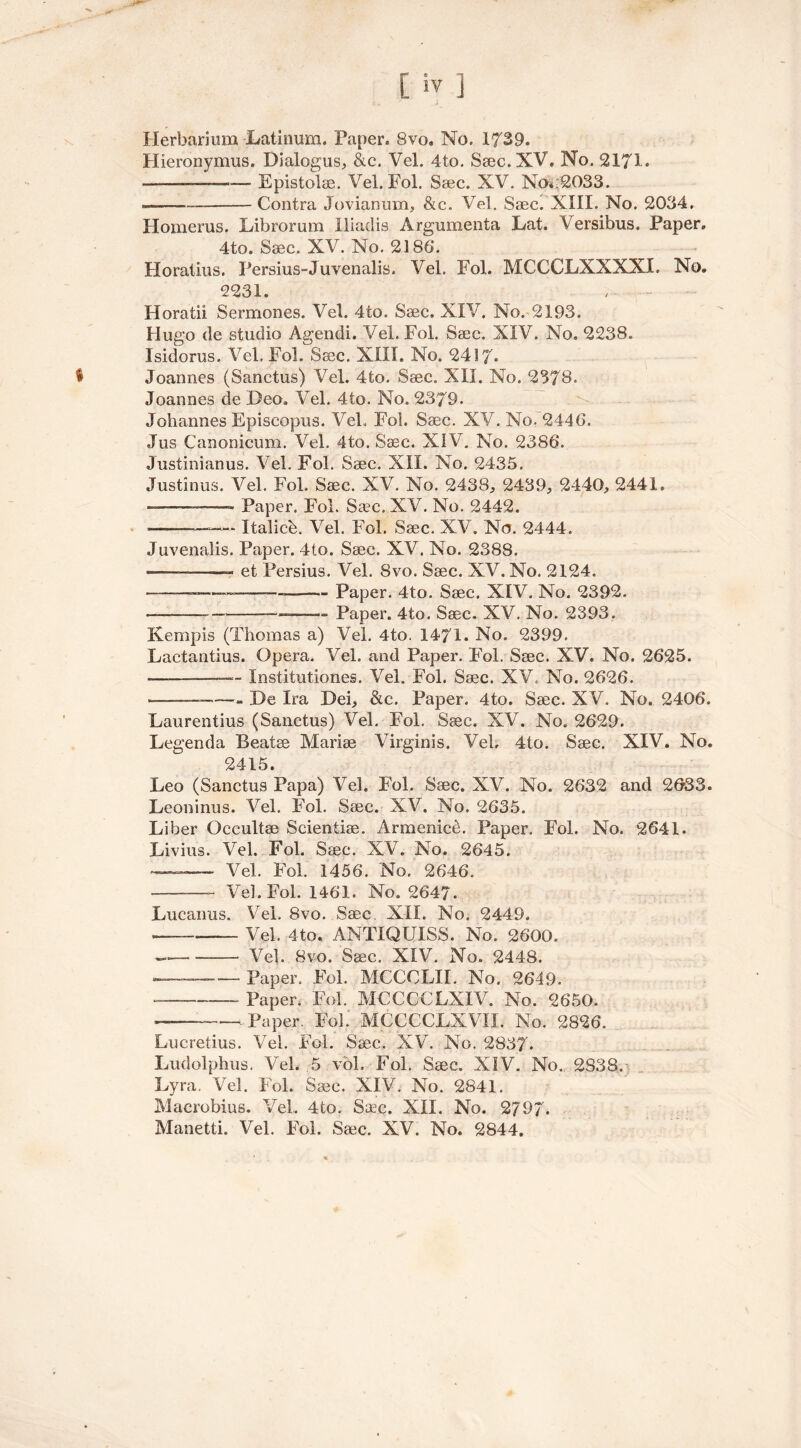 [ iv ]
Herbarium Latinum. Paper. 8vo. No. 1739.
Hieronymus. Dialogus, &c. Vel. 4to. Sæc. XV. No. 2171.
———— Epistolæ. Vel. Fol. Sæc. XV. No. 2033.
———— Contra Jovianum, &c. Vel. Sæc. XIII. No. 2034.
Homerus. Librorum Iliadis Argumenta Lat. Versibus. Paper.
4to. Sæc. XV. No. 2186.
Horatius. Persius-Juvenalis. Vel. Fol. MCCCLXXXXI. No.
2231.
Horatii Sermones. Vel. 4to. Sæc. XIV. No. 2193.
Hugo de studio Agendi. Vel. Fol. Sæc. XIV. No. 2238.
Isidorus. Vel. Fol. Sæc. XIII. No. 2417.
Joannes (Sanctus) Vel. 4to. Sæc. XII. No. 2378.
Joannes de Deo. Vel. 4to. No. 2379.
Johannes Episcopus. Vel. Fol. Sæc. XV. No. 2446.
Jus Canonicum. Vel. 4to. Sæc. XIV. No. 2386.
Justinianus. Vel. Fol. Sæc. XII. No. 2435.
Justinus. Vel. Fol. Sæc. XV. No. 2438, 2439, 2440, 2441.
———— Paper. Fol. Sæc. XV. No. 2442.
———— Italicè. Vel. Fol. Sæc. XV. No. 2444.
Juvenalis. Paper. 4to. Sæc. XV. No. 2388.
———— et Persius. Vel. 8vo. Sæc. XV. No. 2124.
———————— Paper. 4to. Sæc. XIV. No. 2392.
———————— Paper. 4to. Sæc. XV. No. 2393.
Kempis (Thomas a) Vel. 4to. 1471. No. 2399.
Lactantius. Opera. Vel. and Paper. Fol. Sæc. XV. No. 2625.
———— Institutiones. Vel. Fol. Sæc. XV. No. 2626.
———— De Ira Dei, &c. Paper. 4to. Sæc. XV. No. 2406.
Laurentius (Sanctus) Vel. Fol. Sæc. XV. No. 2629.
Legenda Beatæ Mariæ Virginis. Vel. 4to. Sæc. XIV. No.
2415.
Leo (Sanctus Papa) Vel. Fol. Sæc. XV. No. 2632 and 2633.
Leoninus. Vel. Fol. Sæc. XV. No. 2635.
Liber Occultæ Scientiæ. Armenicè. Paper. Fol. No. 2641.
Livius. Vel. Fol. Sæc. XV. No. 2645.
———— Vel. Fol. 1456. No. 2646.
———— Vel. Fol. 1461. No. 2647.
Lucanus. Vel. 8vo. Sæc. XII. No. 2449.
———— Vel. 4to. ANTIQUISS. No. 2600.
———— Vel. 8vo. Sæc. XIV. No. 2448.
———— Paper. Fol. MCCCLII. No. 2649.
———— Paper. Fol. MCCCCLXIV. No. 2650.
———— Paper. Fol. MCCCCLXVII. No. 2826.
Lucretius. Vel. Fol. Sæc. XV. No. 2837.
Ludolphus. Vel. 5 vol. Fol. Sæc. XIV. No. 2838.
Lyra. Vel. Fol. Sæc. XIV. No. 2841.
Macrobius. Vel. 4to. Sæc. XII. No. 2797.
Manetti. Vel. Fol. Sæc. XV. No. 2844.